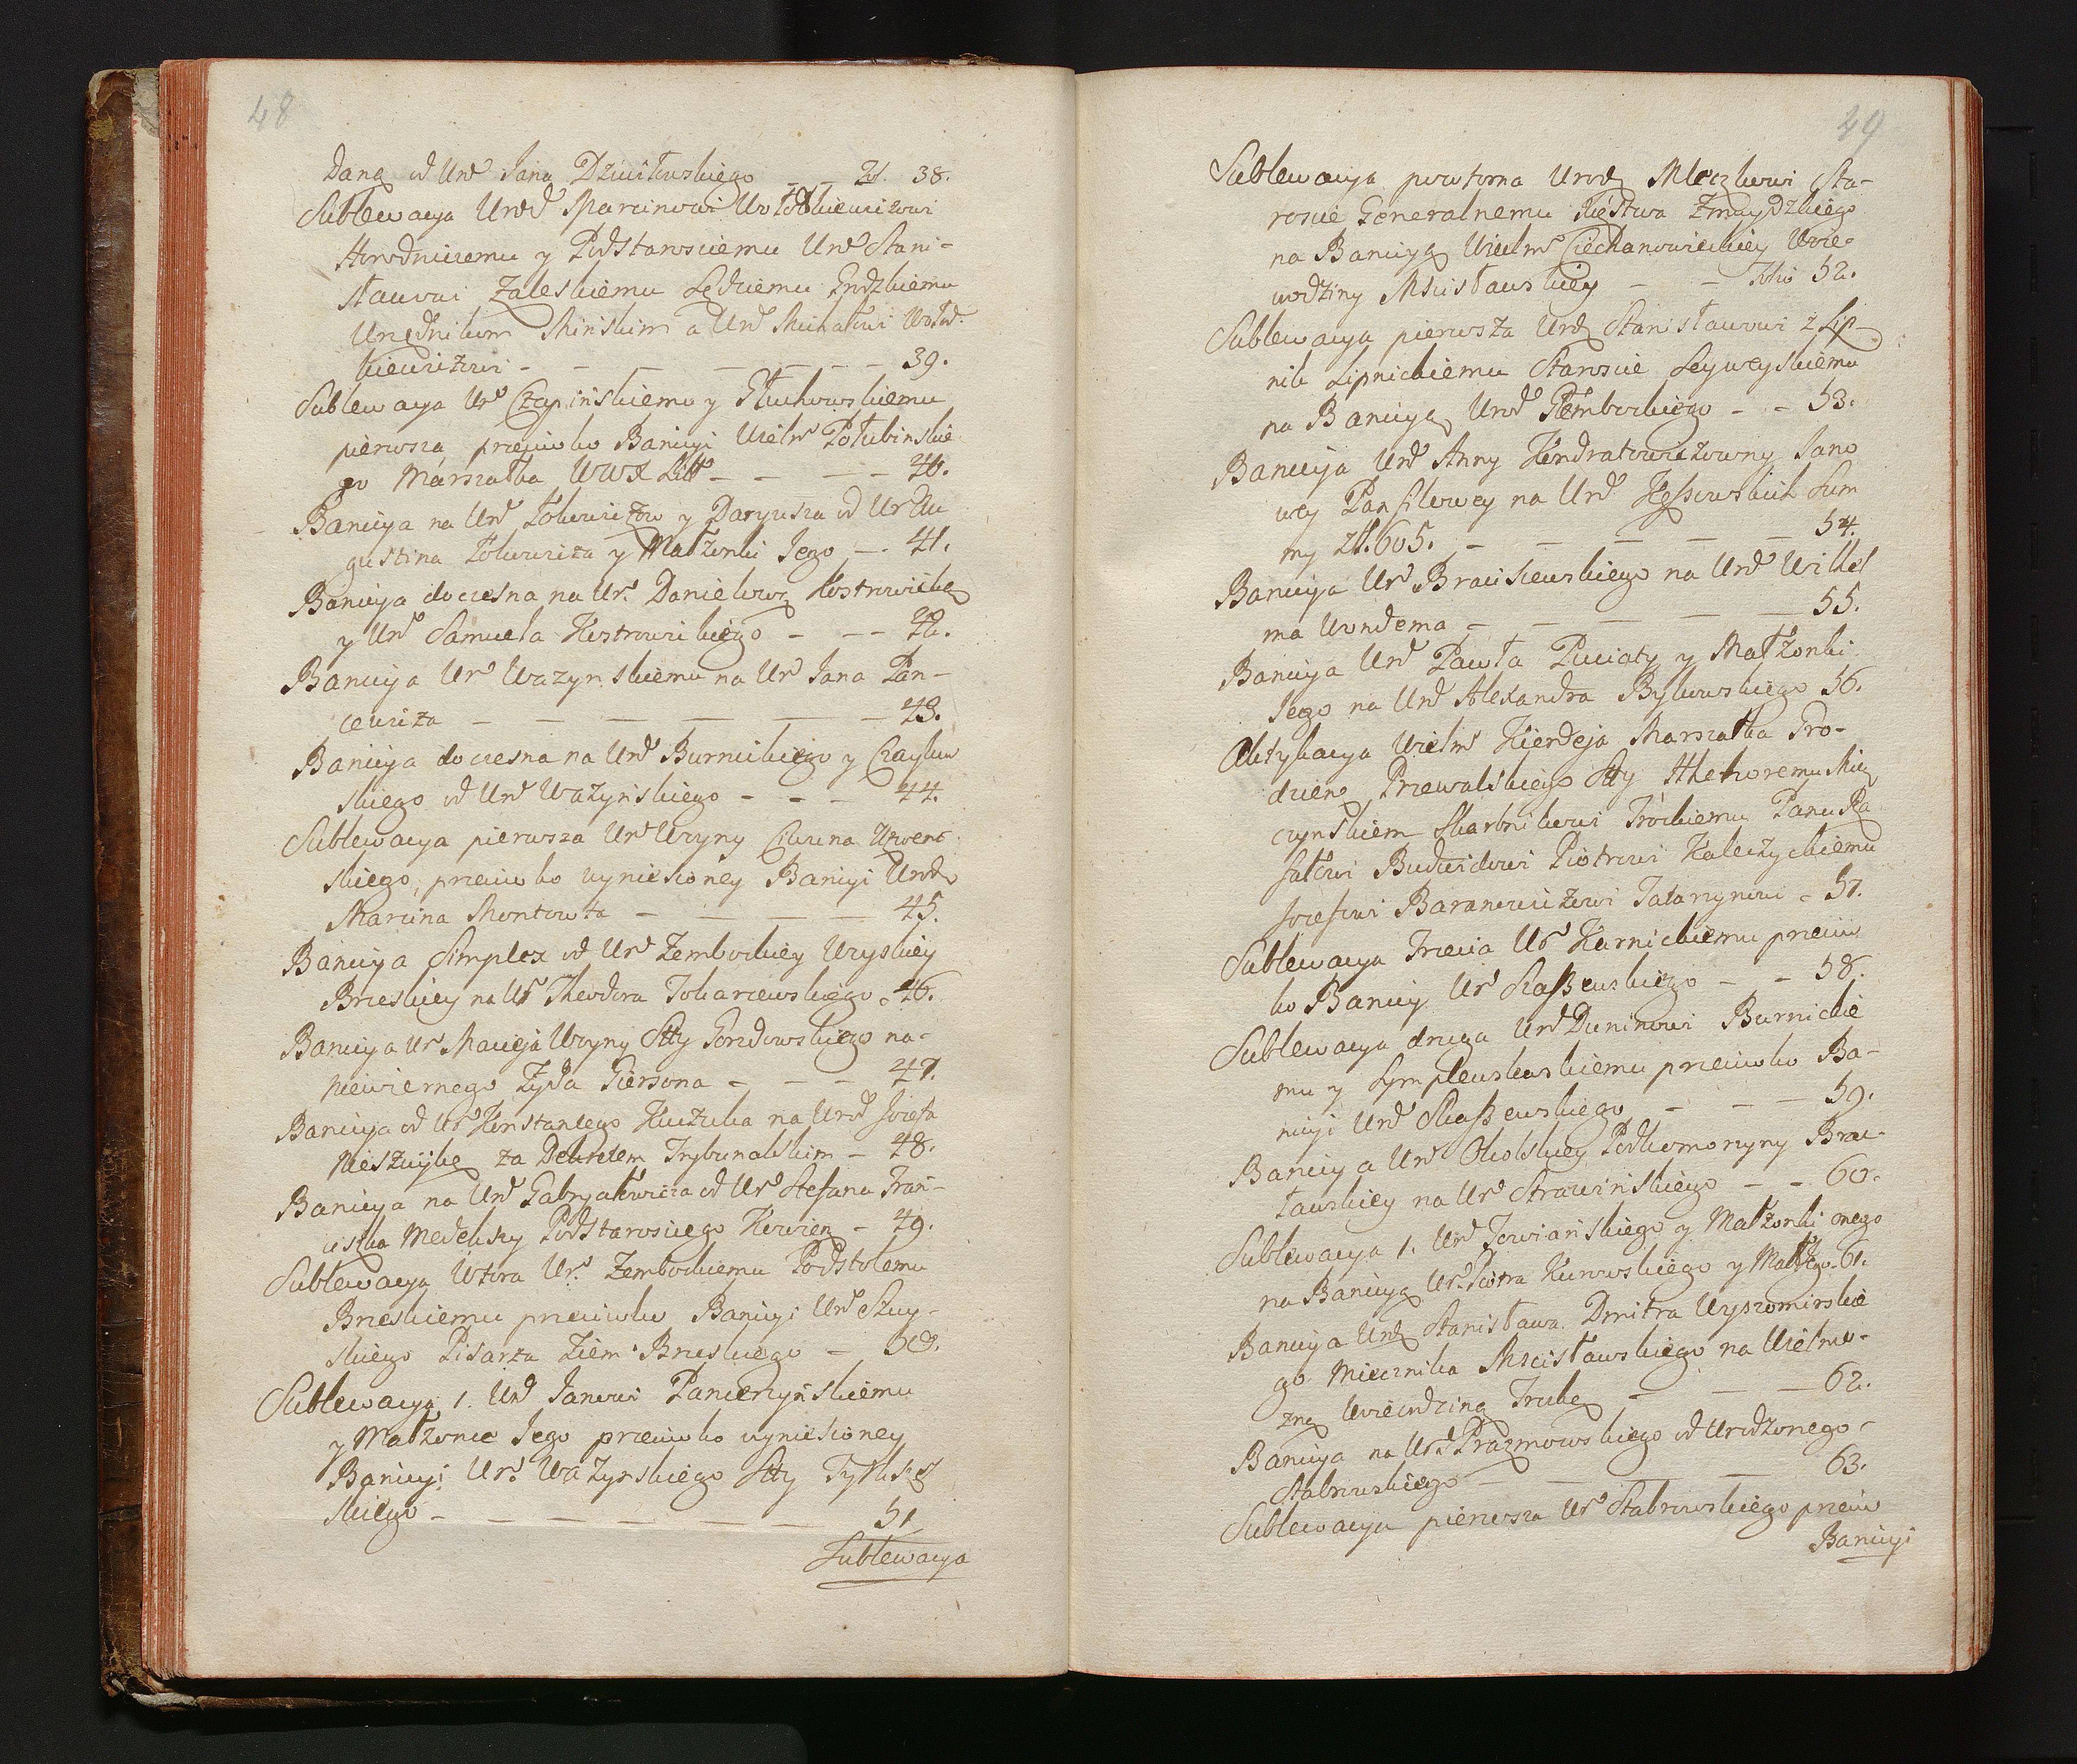 48
Daną od Urd Jana Dziuitowskiego — — zł. 38.
Sublewacya Urod Marcinowi Wołodkiewiczowi
Horodniczemu y Podstarosciemu Urd Stani-
sławowi Zaleskiemu Sędziemu Grdzkiemu
Urzędnikom Minskim a Urd Michałowi Wołod-
kiewiczowi - — — — — — — 39.
Sublewacya Ur Czapinskiemu y Głuchowskiemu
pierwsza przeciwko Banicyi Wielm Połubinskie
go Marszałka WWX Litt — — — 40.
Banicya na Urd y Daryusza od Ur Au
gustina y Małżonki Jego — 41.
Banicya doczesna na Ur. Danielową Kostrowicką
y Urd Samuela Kostrowickiego - — — 42.
Banicya Ur Wazynskiemu na Ur Jana Pan-
cewicza — — — — — — 43.
Banicya doczesna na Urd Burnickiego y Czayków
skiego od Urd Ważyńskiego - — — 44.
Sublewacya pierwsza Ur Woyny Ciwuna Uzwent
skiego, przeciwko wyniesioney Banicyi Urod
Marcina Montowta — — — — 45.
Banicya Simplex od Ur Zembockiey Woyskiey
Brzeskiey na Ur Theodora Tokarzewskiego - 46.
Banicya Ur Macieja Woyny Stty Gorzdowskiego na-
niewiernego Żyda Giersona - — — 47.
Banicya od Ur Konstantego Kuczuka na Urod Jozefa
Nieszuykę za Dekretem Trybunalskim — 48.
Banicya na Urd Gabryałowicza od Ur Stefana Fran-
ciszka Medekszy Podstarosciego Kowien - 49.
Sublewacya Wtora Ur. Zembockiemu Podstolemu
Brzeskiemu przeciwko Banicyi Urd Szuy-
skiego Pisarza Ziem: Brzeskiego — 50.
Sublewacya 1. Urd Janowi Pancerzyńskiemu
y Małżonce Jego przeciwko wyniesioney
Banicyi Ur. Ważynskiego Stty
skiego - — — — — — 51
Sublewacya
49
Sublewacya powtorna Urod Mleczkowi Sta-
roscie Generalnemu Xięstwa Zmuydzkiego
na Banicyą Wielm Ciechanowieckiey Woie-
wodziny Mscisławskiey — — folio 52.
Sublewacya pierwsza Urd Stanisławowi z Lip-
nik Lipnickiemu Staroscie Leyweyskiemu
na Banicyą Urod Głembockiego - - 53.
Banicya Urd Anny Kondratowiczowny Jano
wey Panfilowey na Urd Kossowskich Sum
my Zł. 605. — — — — — 54.
Banicya Ur Braciszewskiego na Urd Wilhel
ma Wondema — — — — — 55.
Banicya Urd Pawła Puciaty y Małżonki
Jego na Urd Alexandra Bykowskiego 56.
Aktykacya Wielm Kierdeja Marszałka Gro-
dzien Przewalskiego Stty
czynskiem Skarbnikowi Trockiemu Panu Ra
fałowi Budwidowi Piotrowi Kaleczyckiemu
Jozefowi Baranowiczowi Tatarzynowi - 57.
Sublewacya Trzecia Ur Karnickiemu przeciw
ko Banicy Ur Staßewskiego — — 58.
Sublewacya druga Urd Duninowi Burnickie
mu y przeciwko Ba-
nicyi Urd Staßewskiego — — — 59.
Banicya Urd Okolskiey Podkomorzyny Brac-
ławskiey na Ur Strawińskiego — — 60.
Sublewacya 1. Urd Jowiańskiego y Małżonki onego
na Banicyą Ur. Piotra Kurowskiego y Małż. Ego. 61.
Banicya Urd Stanisława Dmitra Wyszomirskie
go Miecznika Mscisławskiego na Wielmo-
żną Woiewodziną Trocką — — — 62.
Banicya na Urd Prazmowskiego od Urodzonego-
Stabrowskiego — — — — 63.
Sublewacya pierwsza Ur Stabrowskiego przeciw
Banicyi